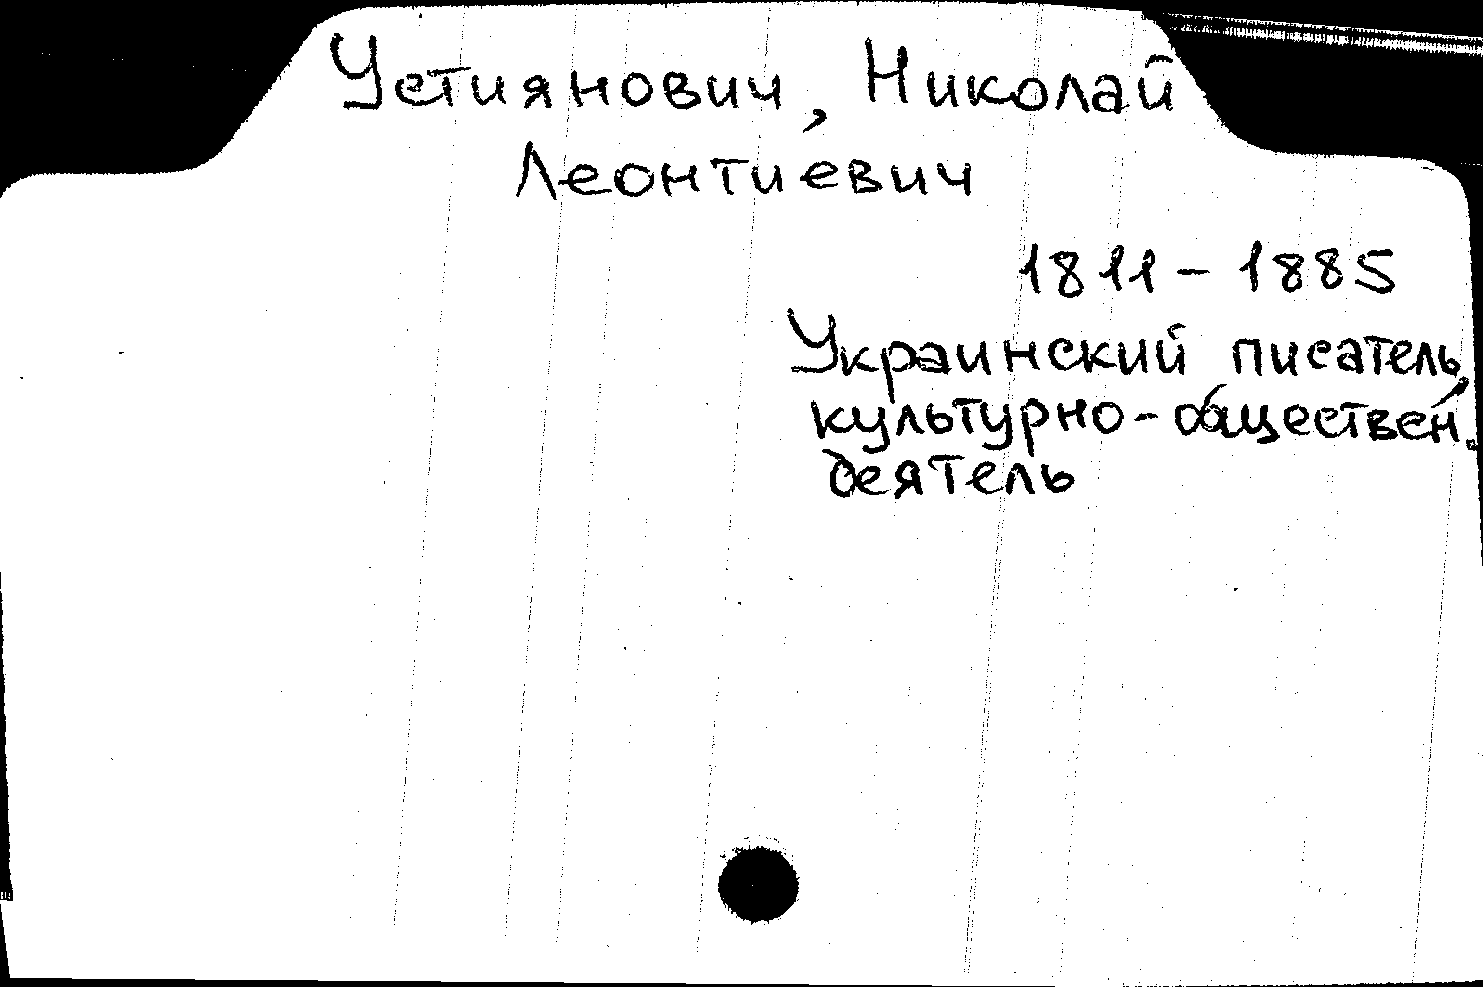 Устиянович, Николай
Леонтиевич
1811 – 1885
Украинский писатель,
культурно-обществен.
деятель